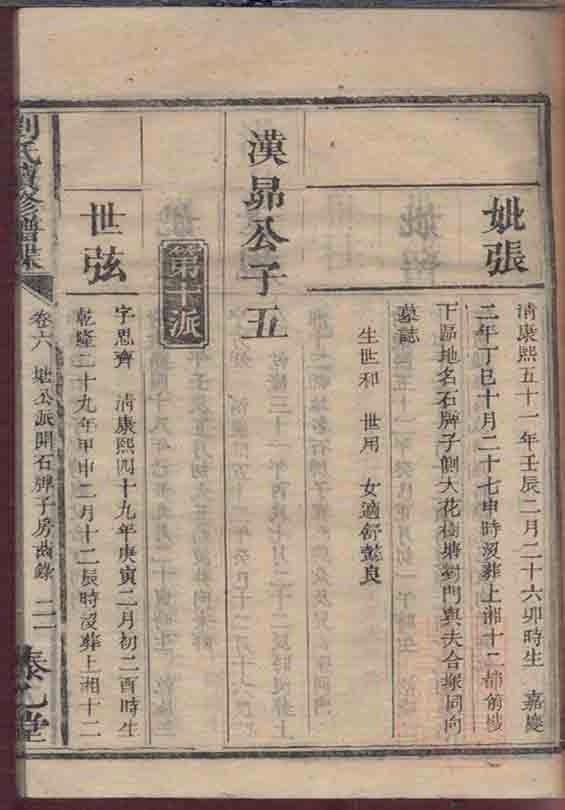 妣張
清康熙五十一年壬辰二月二十六卯時生 嘉慶
二年丁巳十月二十七申時沒葬上湘十二
下區地名石牌子側大花樹塘對門與夫合塚同向
墓誌
生世和 世用 女適舒懿良
漢昴公子五
第十派
世弦
字思齊 清康熙四十九年庚寅二月初二酉時生
乾隆二十九年甲申二月十二辰時沒葬上湘十二
劉氏續修譜牒
卷六 公派開石牌子房齒錄 二二
泰七堂